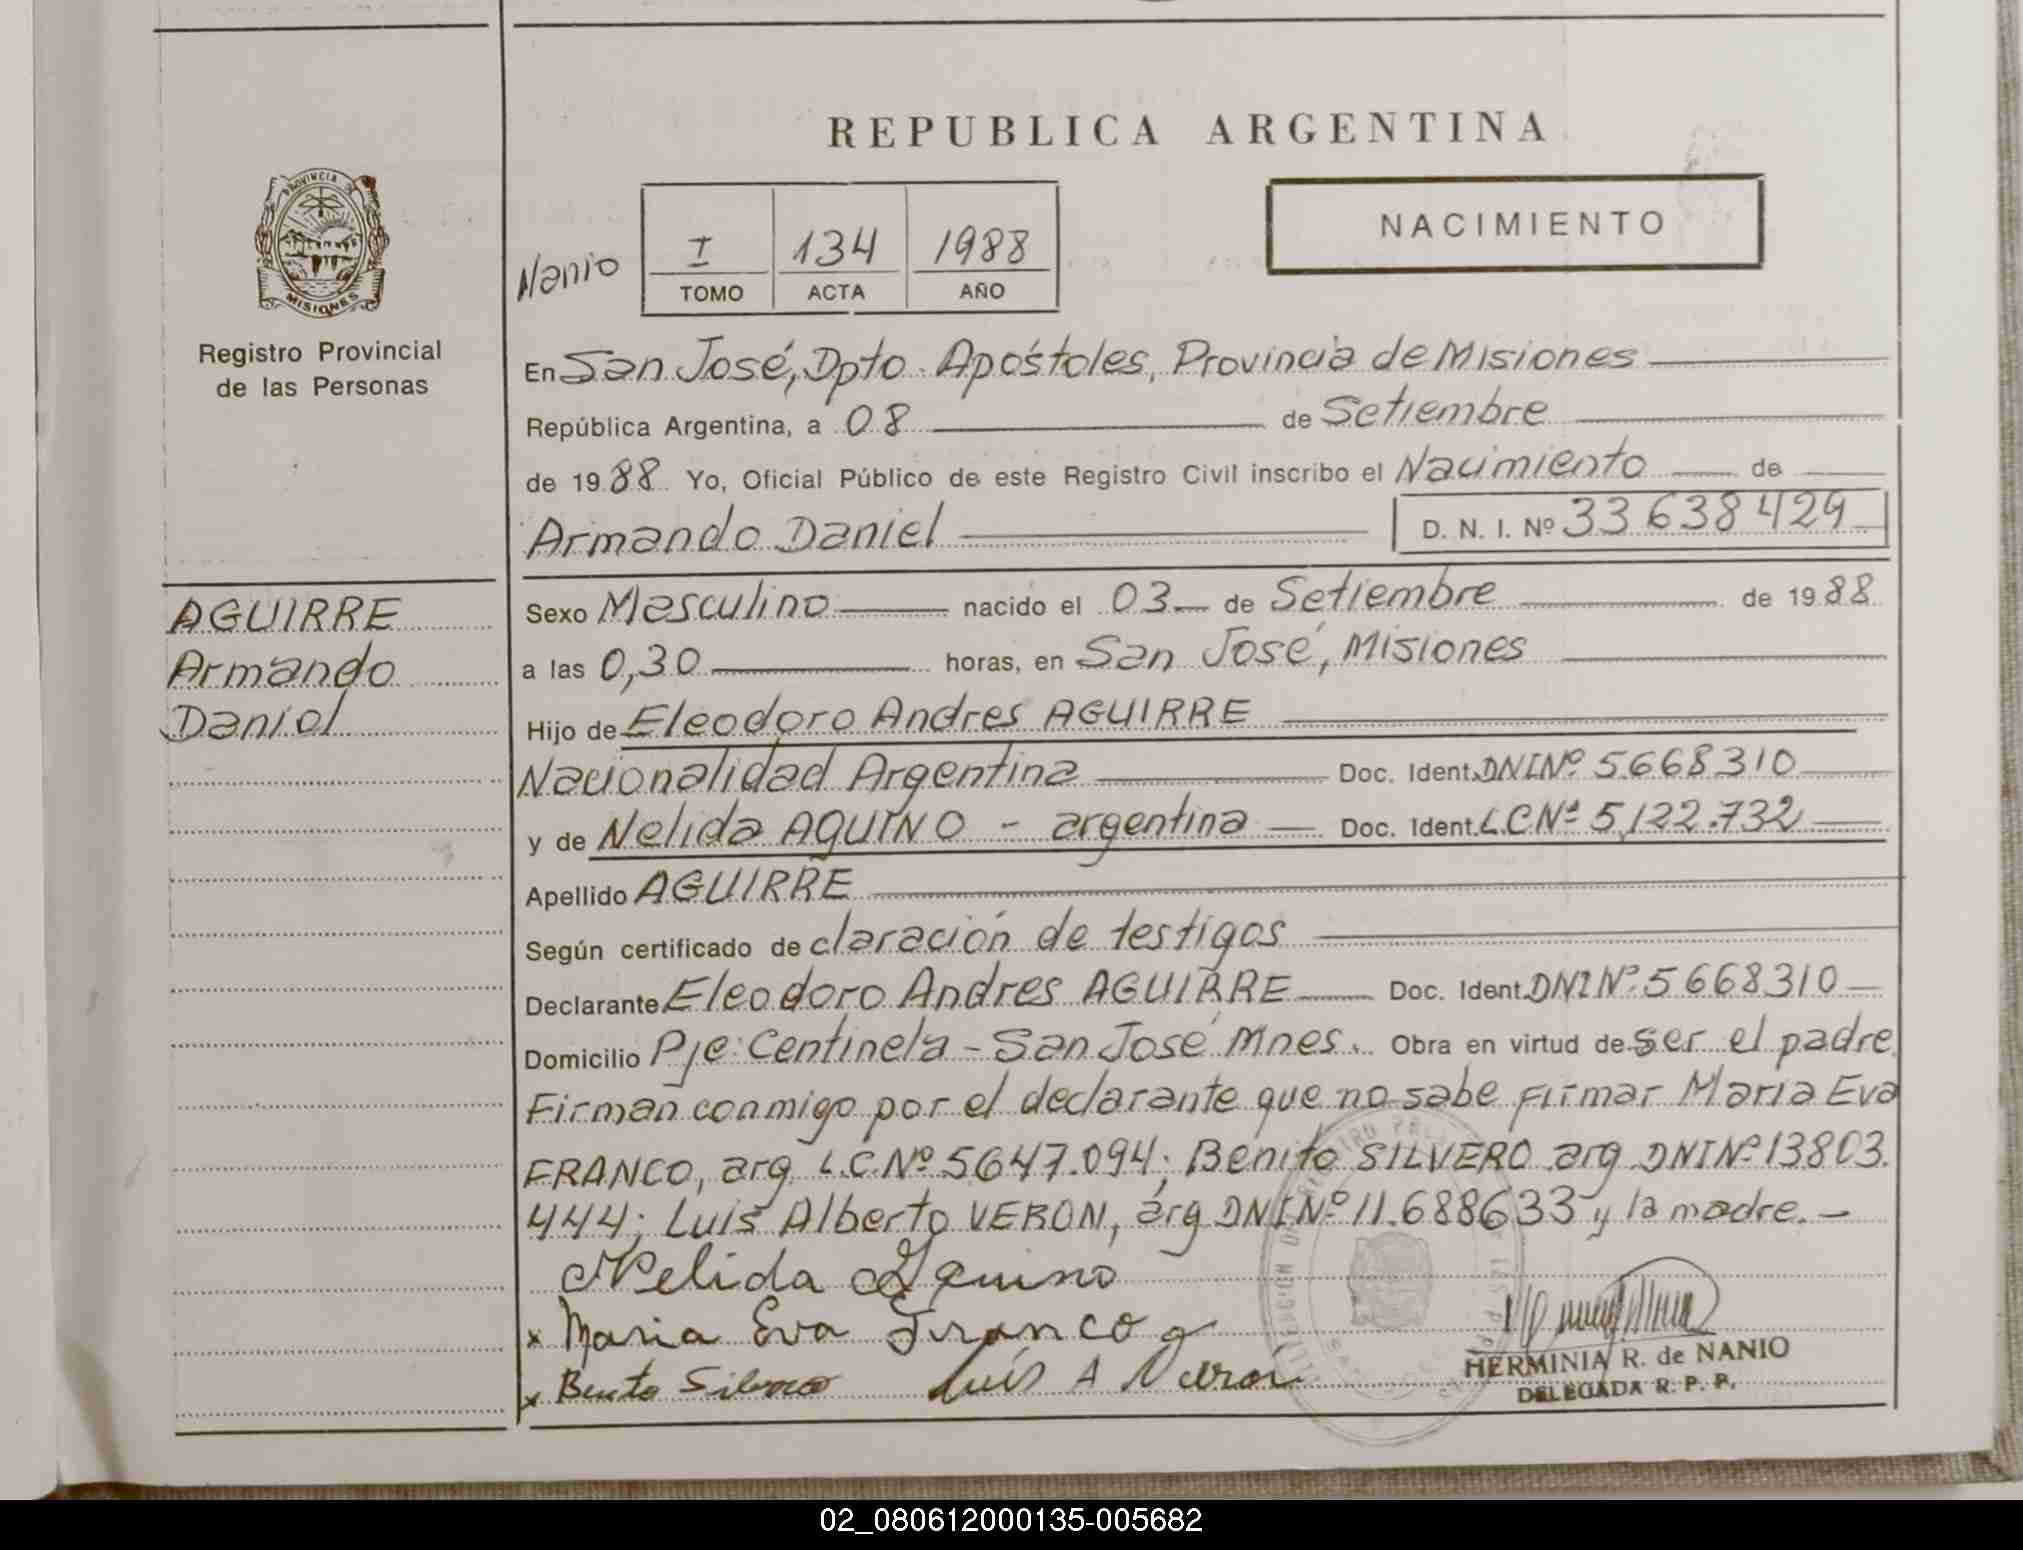 REPUBLICA ARGENTINA
PROVINCIA DE
MISIONES
Registro Provincial
de las Personas
Nanio
I 134 1988
TOMO ACTA AÑO
NACIMIENTO
En San José, Dpto. Apóstoles, Provincia de Misiones
República Argentina, a 08 de Setiembre
de 1988 Yo, Oficial Público de este Registro Civil inscribo el Nacimiento de
Armando Daniel D. N. I. Nº 33638429
AGUIRRE
Armando
Daniel
Sexo Masculino nacido el 03 de Setiembre de 1988
a las 0,30 horas, en San José, Misiones
Hijo de Eleodoro Andres AGUIRRE
Nacionalidad Argentina Doc. Ident. DNINº 5668310
y de Nelida AQUINO - argentina Doc. Ident. LCNº 5,122.732
Apellido AGUIRRE
Según certificado de claración de testigos
Declarante Eleodoro Andres AGUIRRE Doc. Ident. DNINº 5668310
Domicilio Pje. Centinela - San José Mnes. Obra en virtud de ser el padre.
Firman conmigo por el declarante que no sabe firmar Maria Eva
FRANCO, arg. L.C.Nº 5647.094; Benito SILVERO arg. DNINº 13803.
444; Luis Alberto VERON, arg DNINº 11.688633 y la madre. -
Nelida Aquino
x Maria Eva Franco
x Benito Silvero Luis A Veron
HERMINIA R. de NANIO
DELEGADA R. P. P.
02_080612000135-005682